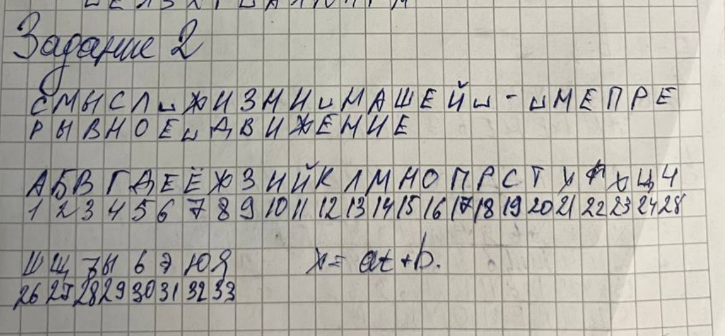 Задание 2
СМЫСЛ␣ЖИЗНИ␣НАШЕЙ␣-␣НЕПРЕ
РЫВНОЕ␣ДВИЖЕНИЕ
А Б В Г Д Е Ё Ж З И Й К Л М Н О П Р С Т У Ф Х Ц Ч
1 2 3 4 5 6 7 8 9 10 11 12 13 14 15 16 17 18 19 20 21 22 23 24 25
Ш Щ Ъ Ы Ь Э Ю Я x = at + b.
26 27 28 29 30 31 32 33